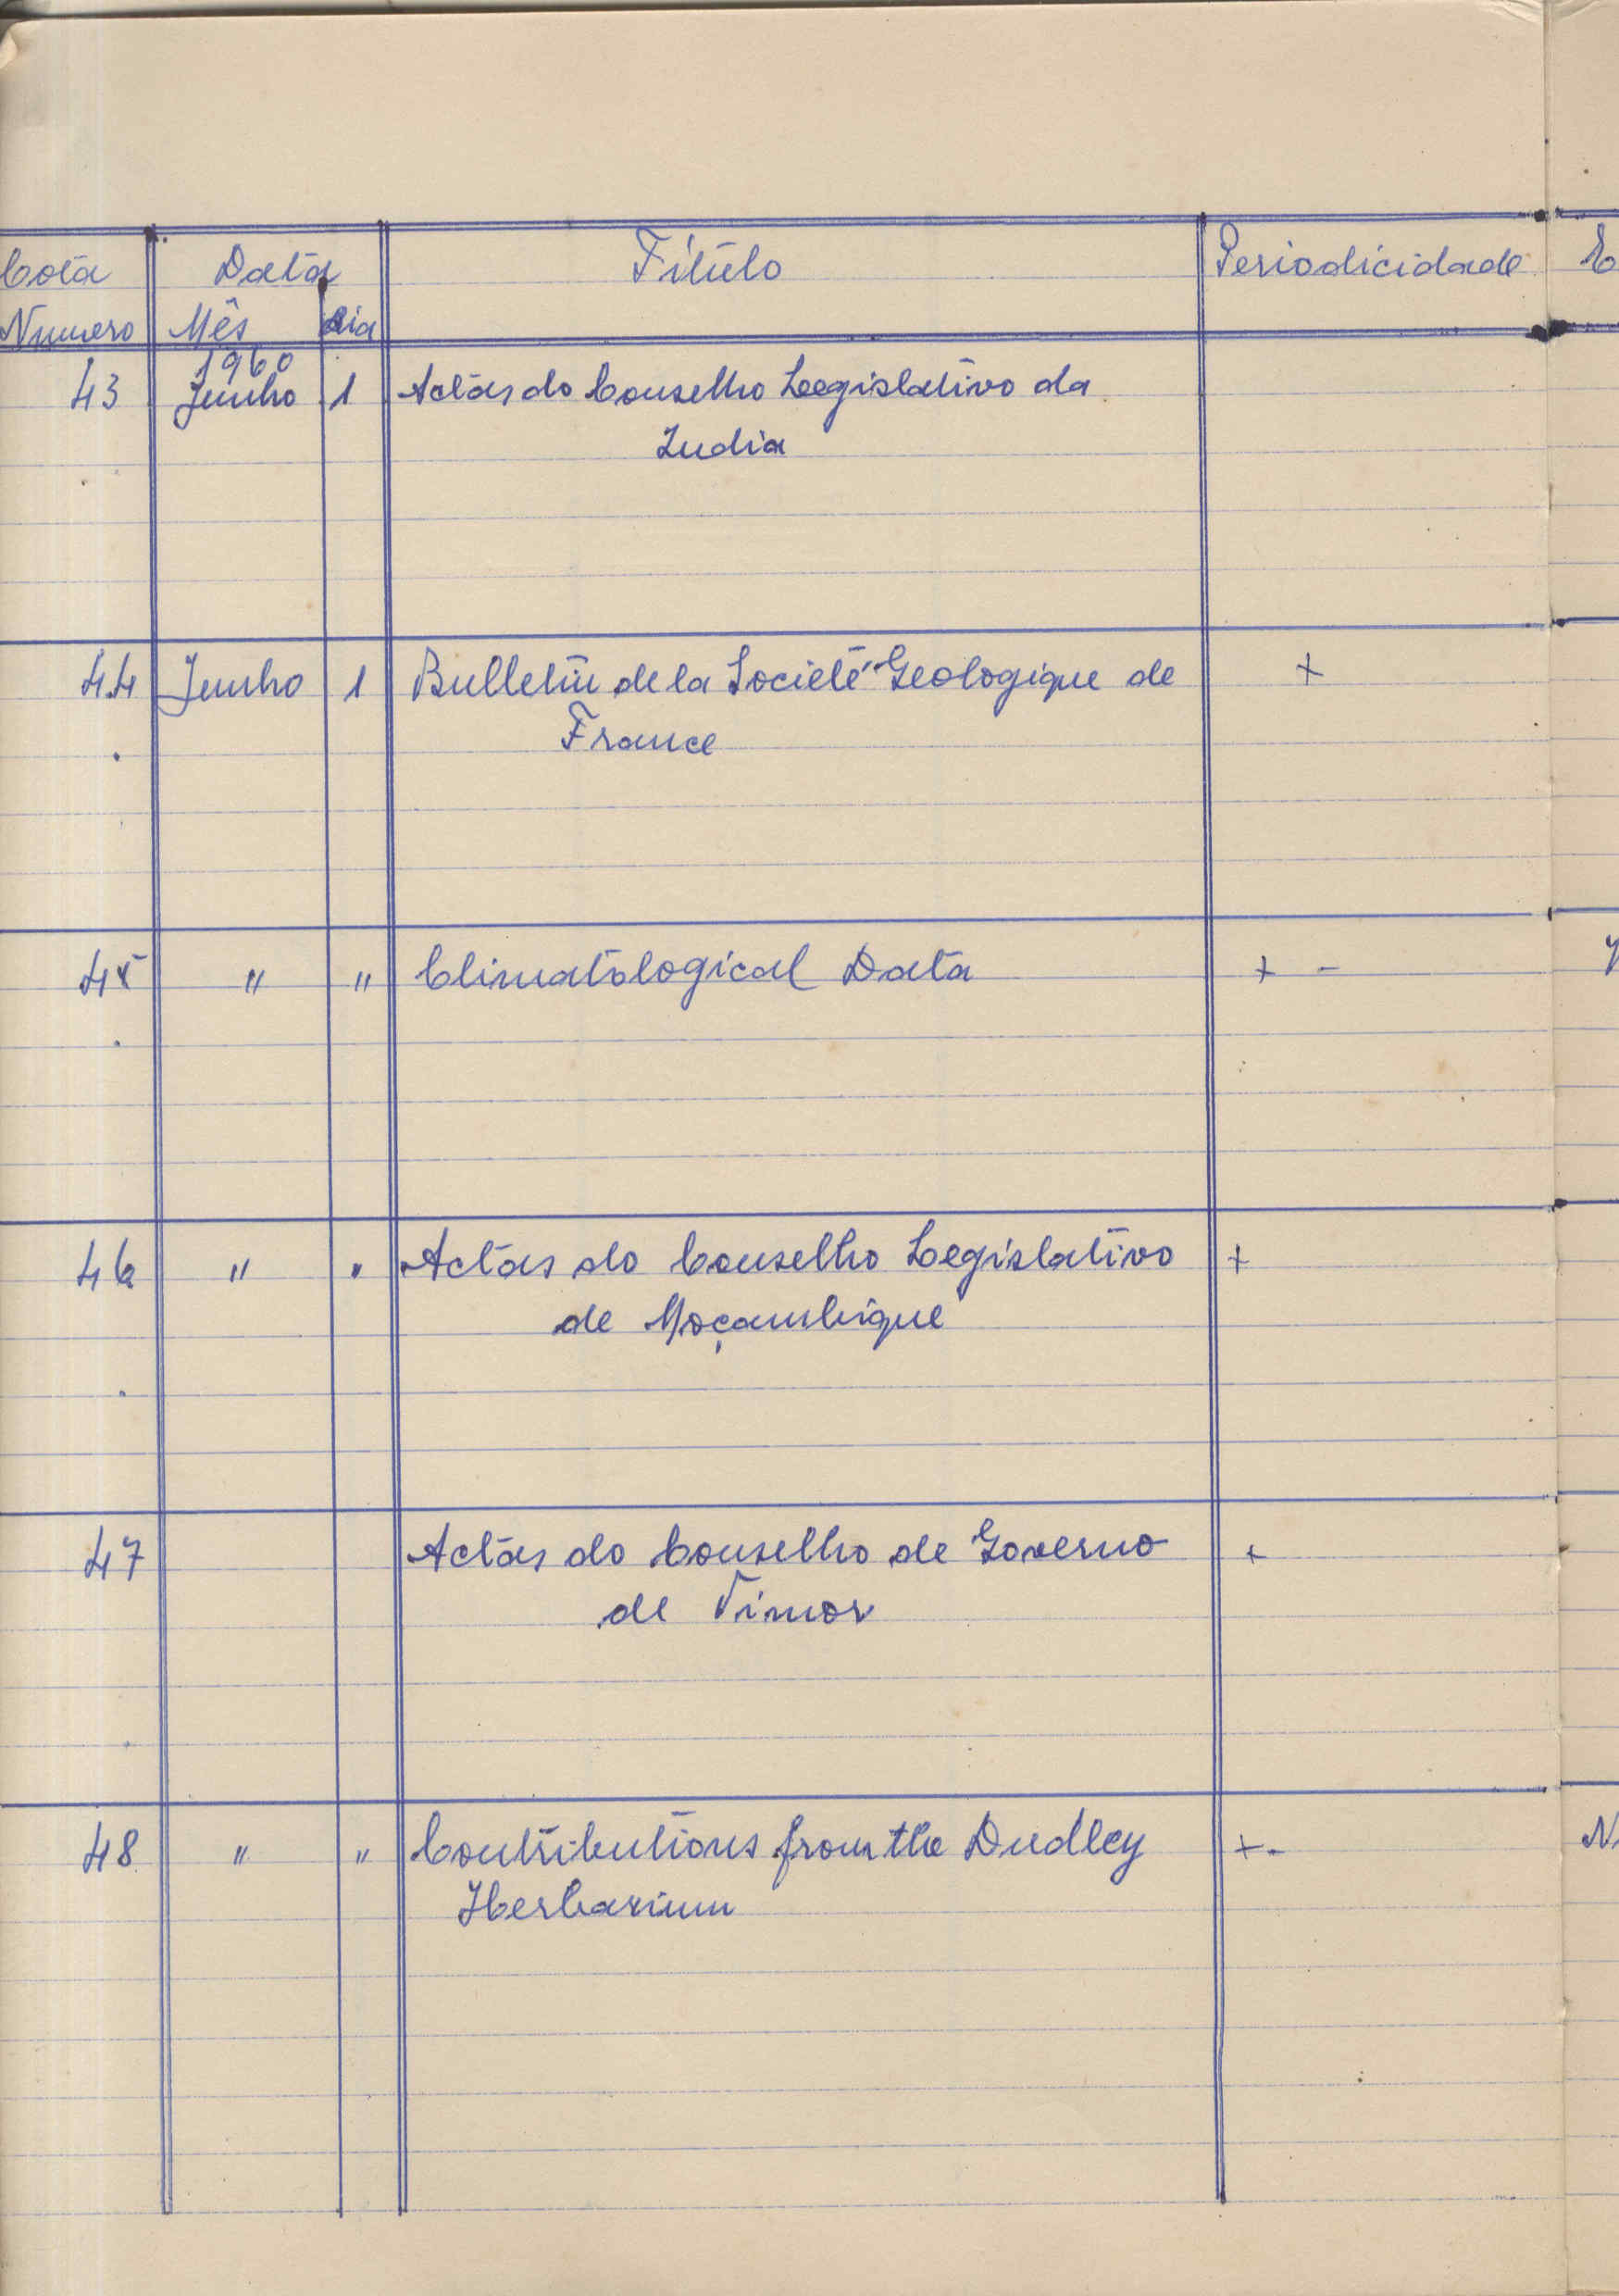 Cota Data Título Periodicidade E
Numero Mês dia
1960
43 Junho 1 Actas do Conselho Legislativo da
India
44 Junho 1 Bulletin de la Societé Geologique de +
France
45 " " Climatological Data + -
46 " " Actas do Conselho Legislativo +
de Moçambique
47 Actas do Conselho de Governo +
de Timor
48 " " Contributions from the Dudley + - N
Herbarium